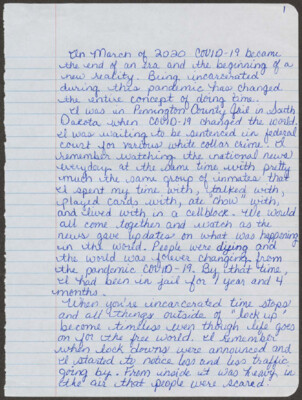 1
In March of 2020 COVID-19 became
the end of an era and the beginning of a
new reality. Being incarcerated
during this pandemic has changed
the entire concept of doing time.
I was in Pennington County Jail in South
Dakota when COVID-19 changed the world.
I was waiting to be sentenced in federal
court for various white collar crime. I
remember watching the national news
everyday at the same time with pretty
much the same group of inmates that
I spent my time with, talked with,
played cards with, ate "chow" with,
and lived with in a cellblock. We would
all come together and watch as the
news gave updates on what was happening
in the world. People were dying and
the world was forever changing from
the pandemic COVID-19. By that time,
I had been in jail for 1 year and 4
months.
When you're incarcerated time stops
and all things outside of "lock up"
become timeless even though life goes
on for the free world. I remember
when lock downs were announced and
I started to notice less and less traffic
going by. From inside it was heavy in
the air that people were scared.